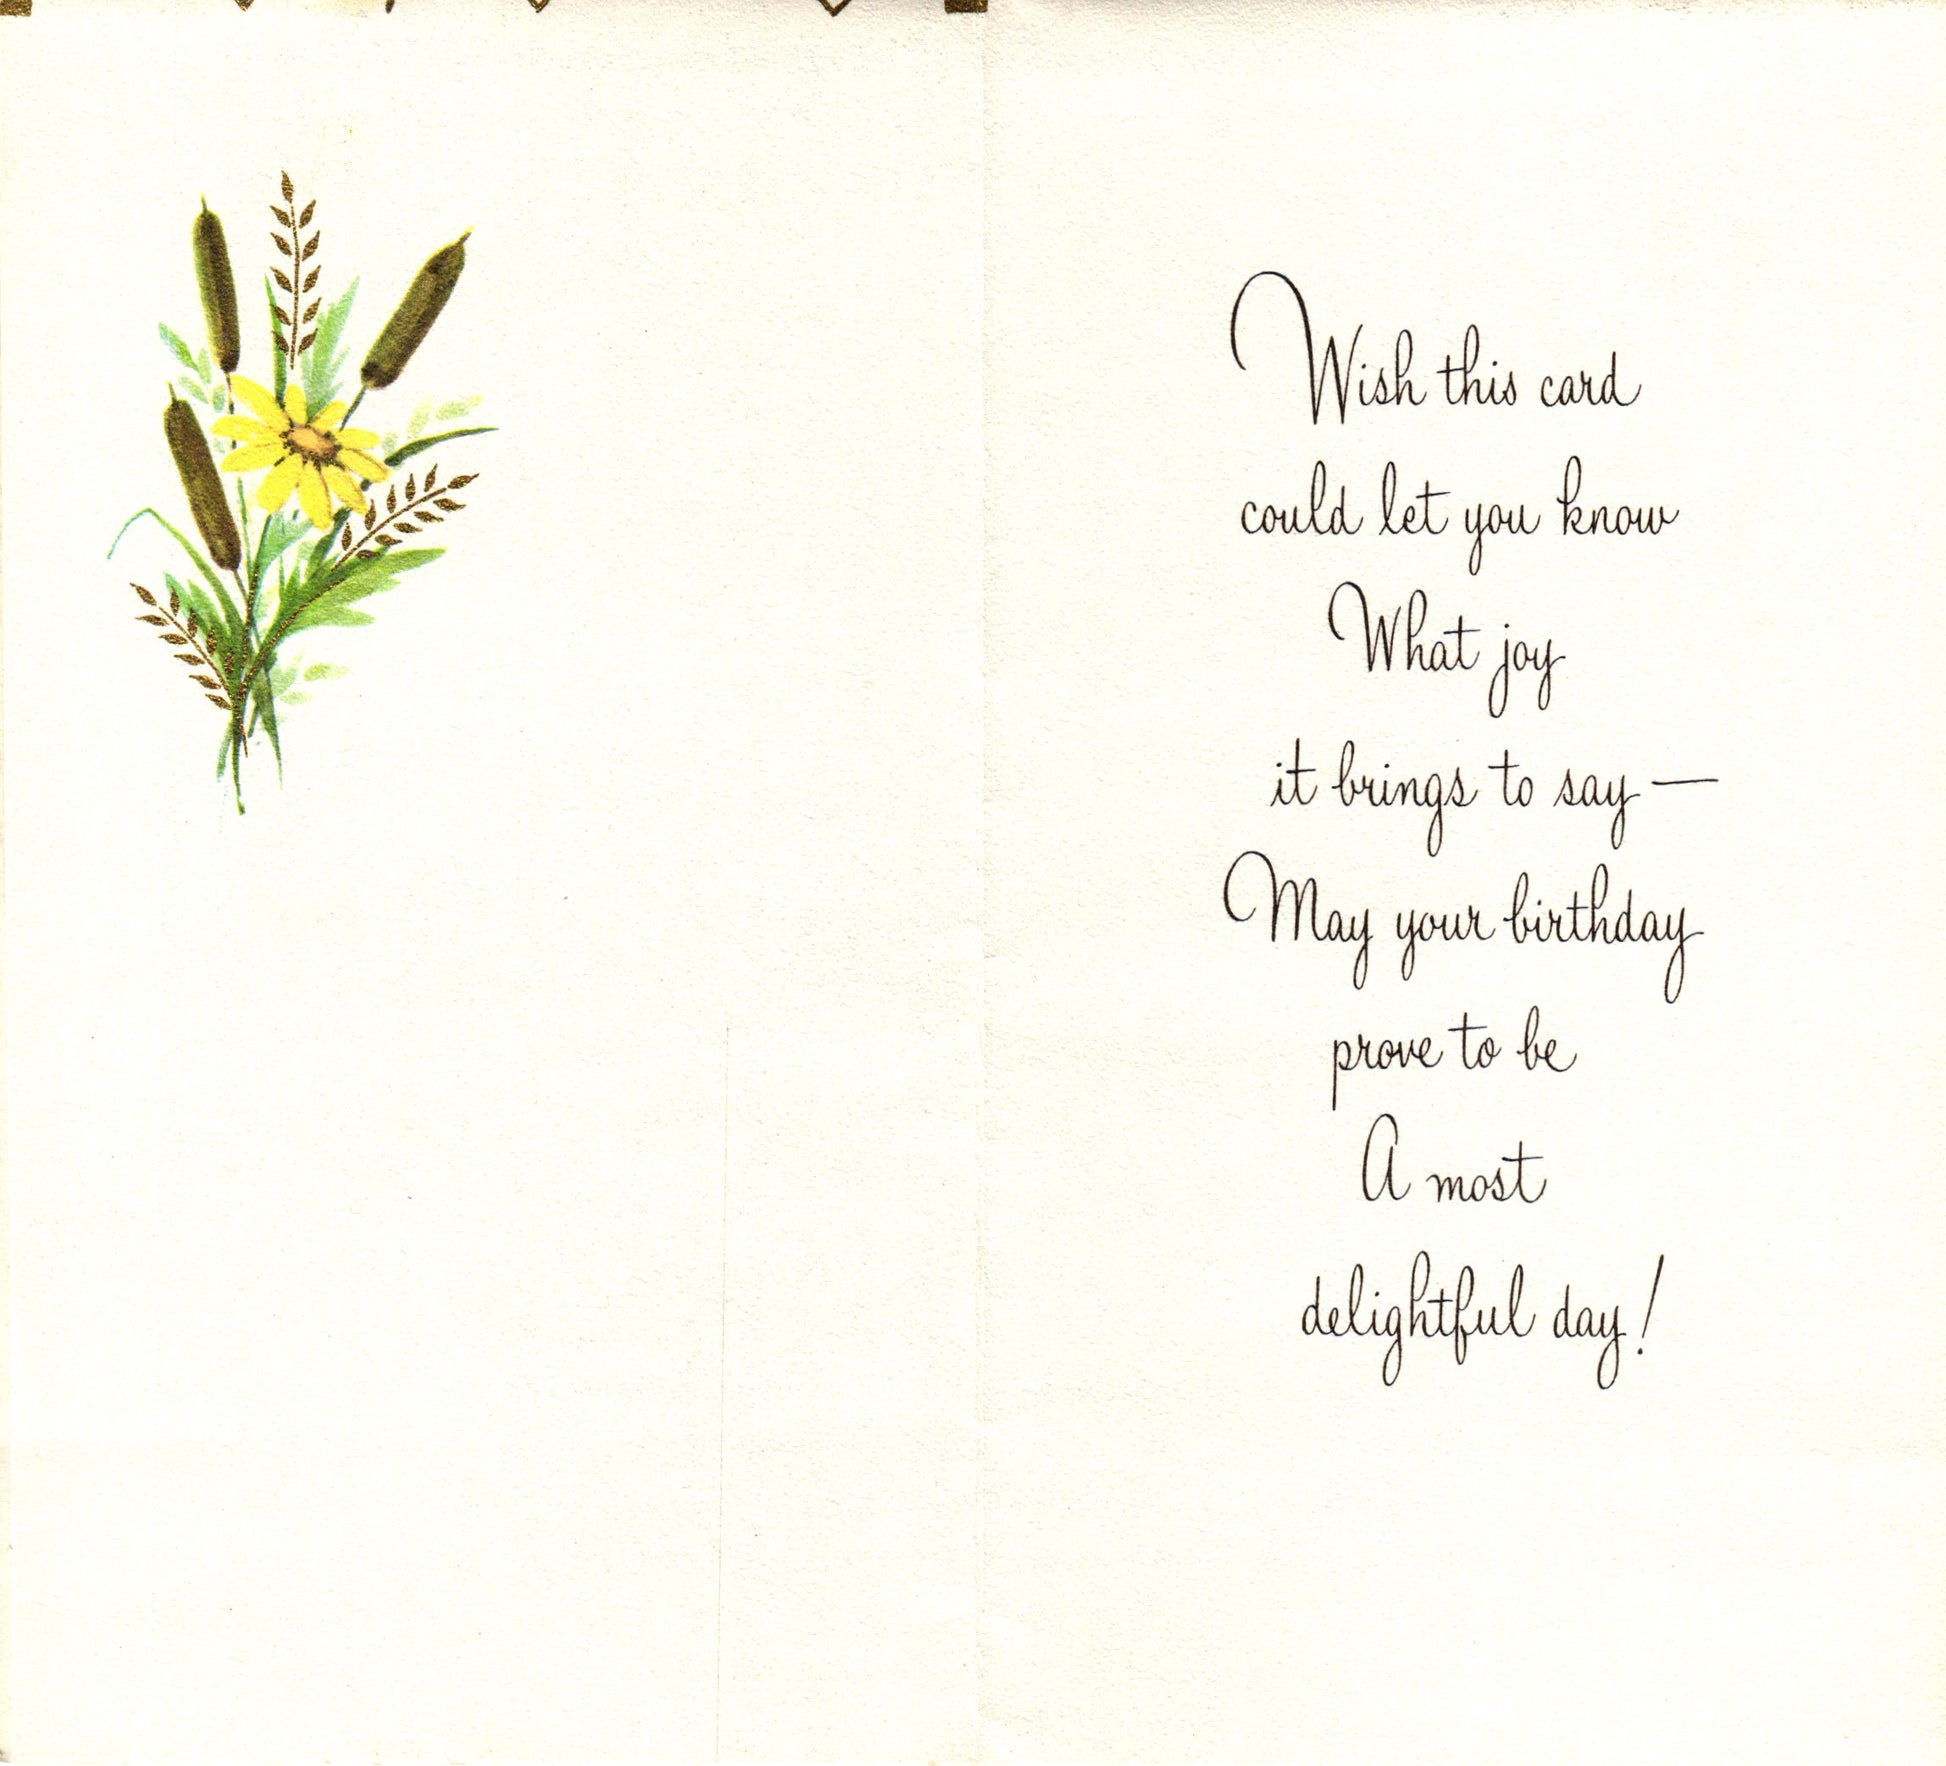 Wish this card
could let you know
What joy
it brings to say —
May your birthday
prove to be
A most
delightful day!